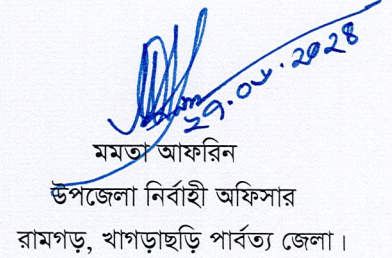 মমতা আফরিন
উপজেলা নির্বাহী অফিসার
রামগড়, খাগড়াছড়ি পার্বত্য জেলা।